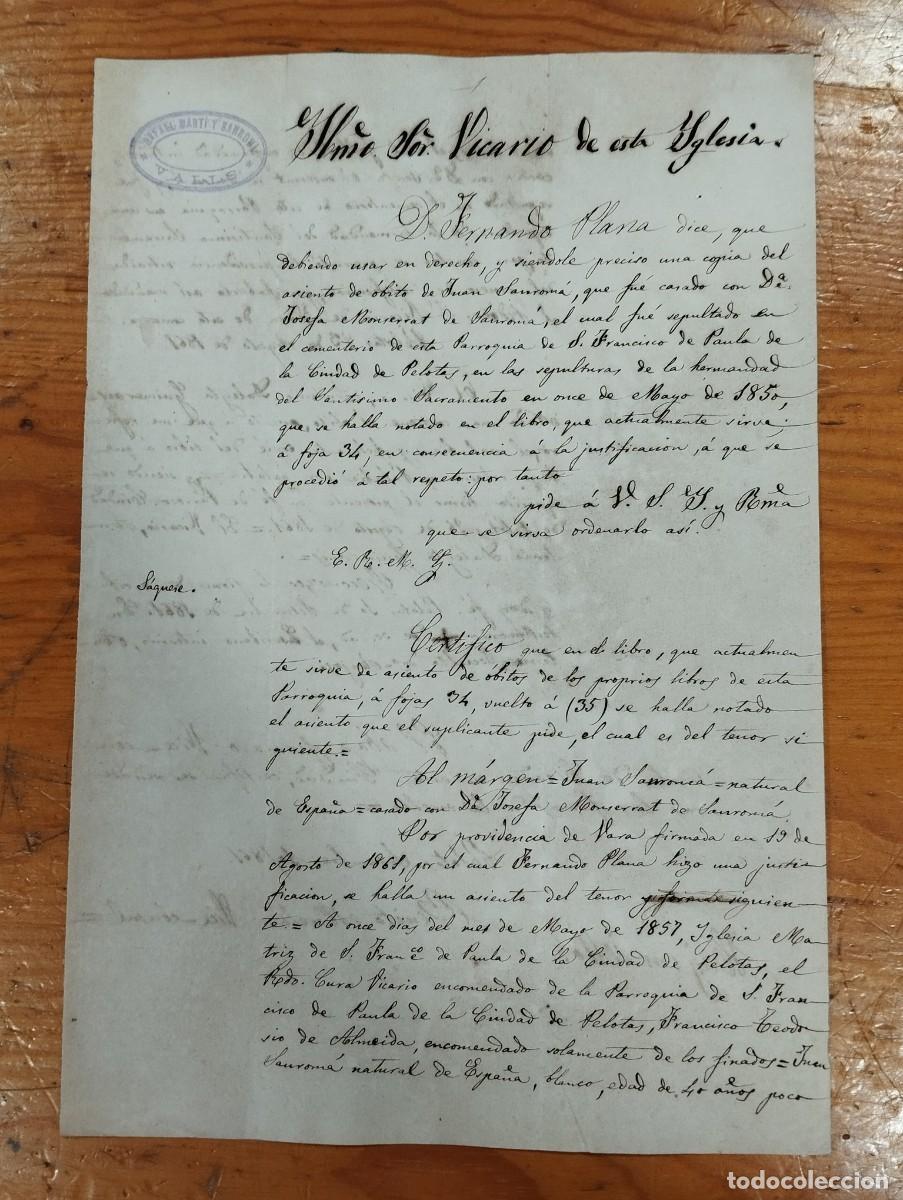 RAFAEL MARTÍ Y SANROMÁ
VALLS
Ilmo. Sor. Vicario de esta Yglesia.
D. Fernando Plana dice, que
debiendo usar en derecho, y siendole preciso una copia del
asiento de óbito de Juan Sanromá, que fué casado con Dª
Josefa Monserrat de Sanromá, el cual fué sepultado en
el cementerio de esta Parroquia de S. Francisco de Paula de
la Ciudad de Pelotas, en las sepulturas de la hermandad
del Santisimo Sacramento en once de Mayo de 1850,
que se halla notado en el libro, que actualmente sirve;
á foja 34, en consecuencia á la justificacion, á que se
procedió á tal respeto: por tanto
pide á V. S. Y. y Rma
que se sirva ordenarlo así.
E. R. M.
Sáquese.
Certifico que en el libro, que actualmen
te sirve de asiento de óbitos de los proprios libros de esta
Parroquia, á fojas 34, vuelto á (35) se halla notado
el asiento que el suplicante pide, el cual es del tenor si
guiente.=
Al márgen = Juan Sanromá = natural
de España = casado con Dª Josefa Monserrat de Sanromá.
Por providencia de Vara firmada en 19 de
Agosto de 1861, por el cual Fernando Plana hizo una justi
ficacion, se halla un asiento del tenor siguien
te.= A once dias del mes de Mayo de 1857, Yglesia Ma
triz de S. Franco. de Paula de la Ciudad de Pelotas, el
Rdo. Cura Vicario encomendado de la Parroquia de S. Fran
cisco de Paula de la Ciudad de Pelotas, Francisco Teodo
sio de Almeida, encomendado solamente de los finados = Juan
Sanromá natural de España, blanco, edad de 40 años poco
todocoleccion